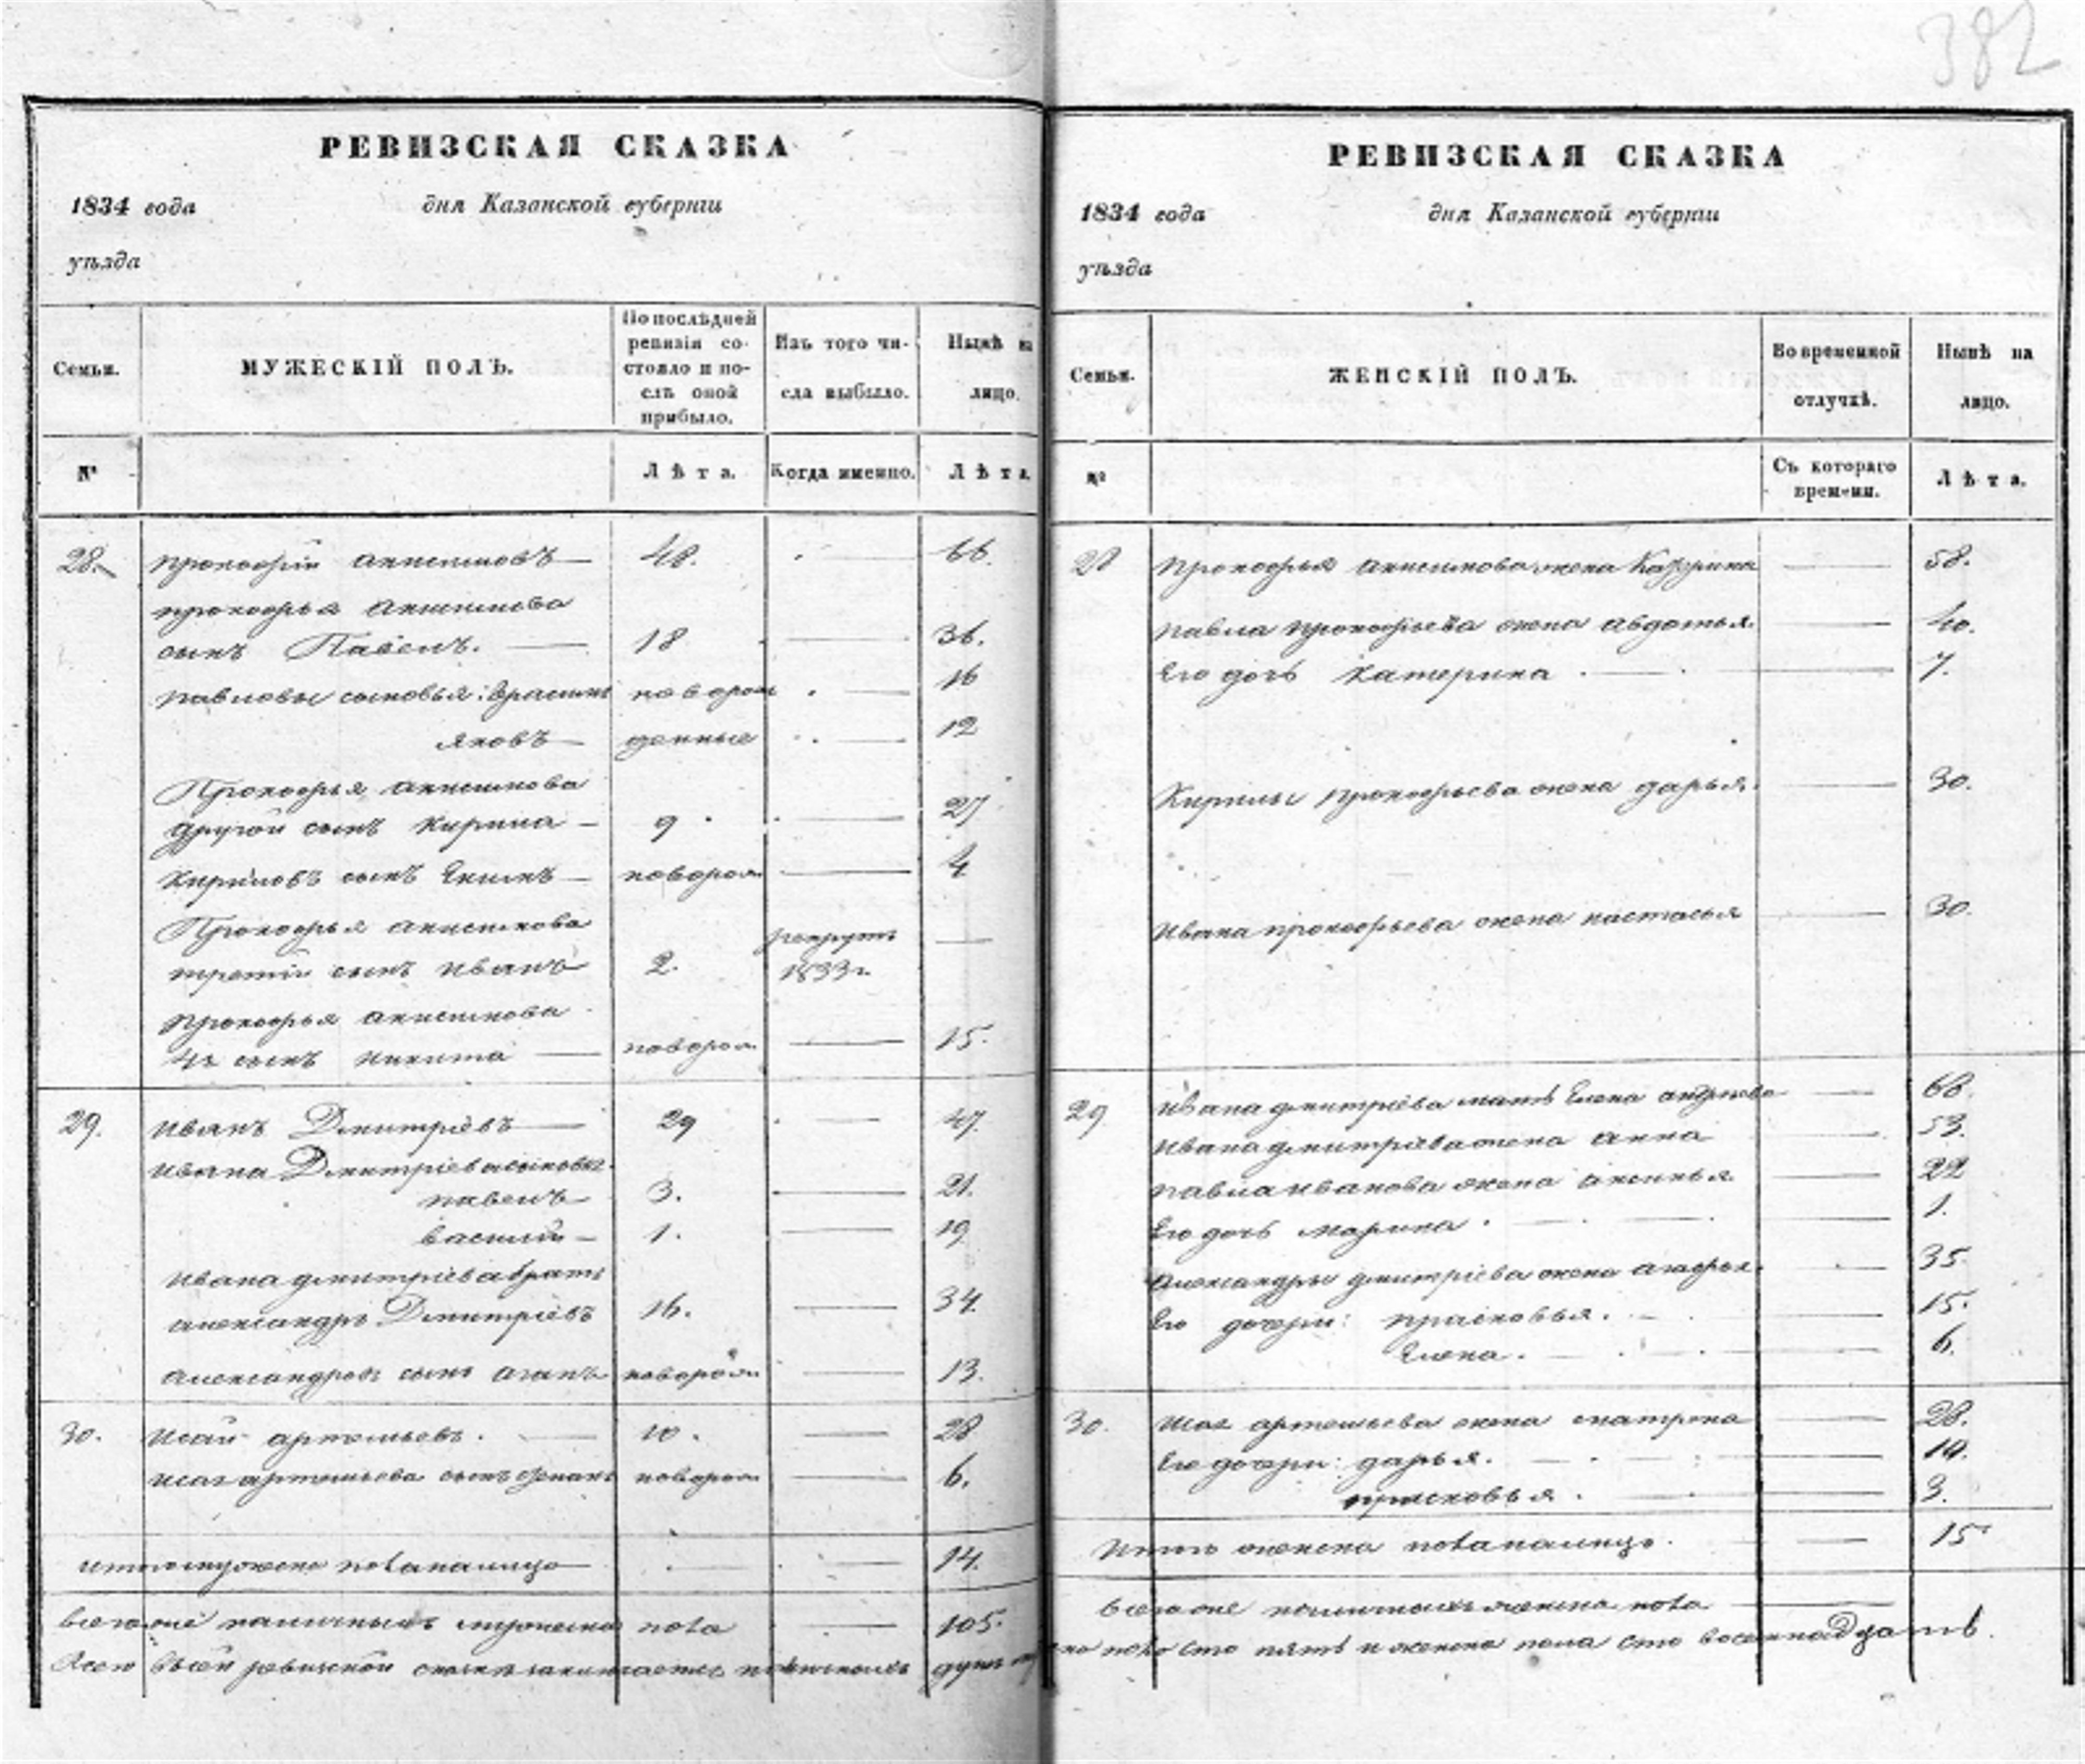 382
РЕВИЗСКАЯ СКАЗКА
1834 года дня Казанской губернiи
уѣзда
Семьи. МУЖЕСКIЙ ПОЛЪ. По послѣдней ревизiи состояло и послѣ оной прибыло. Изъ того числа выбыло. Нынѣ на лицо.
№ Лѣта. Когда именно. Лѣта.
28. прокофiй анисимовъ 48. 66.
прокофья анисимова
сынъ Павелъ. 18 36.
павловы сыновья: новорож 16
яковъ денные 12
Прокофья анисимова
другой сынъ кирила 9 27
кириловъ сынъ Екимъ новорож 4
Прокофья анисимова рекрутъ
третiй сынъ иванъ 2. 1833г.
прокофья анисимова
4й сынъ никита новорож 15.
29. иванъ Дмитрiевъ 29 47.
ивана Дмитрiева сыновья
павелъ 3. 21.
василiй 1. 19
ивана дмитрiева братъ
александръ Дмитрiевъ 16. 34.
александровъ сынъ агапъ новорож 13.
30. исай артемьевъ. 10. 28
исая артемьева сынъ новорож 6.
итого мужеска пола налицо 14.
всего же наличныхъ мужеска пола 105.
всей ревизской душъ
РЕВИЗСКАЯ СКАЗКА
1834 года дня Казанской губернiи
уѣзда
Семьи. ЖЕНСКIЙ ПОЛЪ. Во временной отлучкѣ. Нынѣ на лицо.
№ Съ котораго времени. Лѣта.
28 прокофья анисимова жена 58.
павла прокофьева жена авдотья. 40.
Его дочь катерина 7.
Кирилы прокофьева жена дарья. 30.
ивана прокофьева жена настасья 30.
29 ивана дмитрiева мать Елена андреева 68.
ивана дмитрiева жена анна 53.
павла иванова жена аксинья 22
Его дочь марина 1.
александры дмитрiева жена 35.
Его дочери: прасковья. 15.
Елена. 6.
30. исая артемьева жена матрена 28.
Его дочери: дарья. 10.
прасковья. 3.
итого женска пола налицо. 15
всего же наличныхъ женска пола
пола сто пять и женска пола сто восемнадцать.